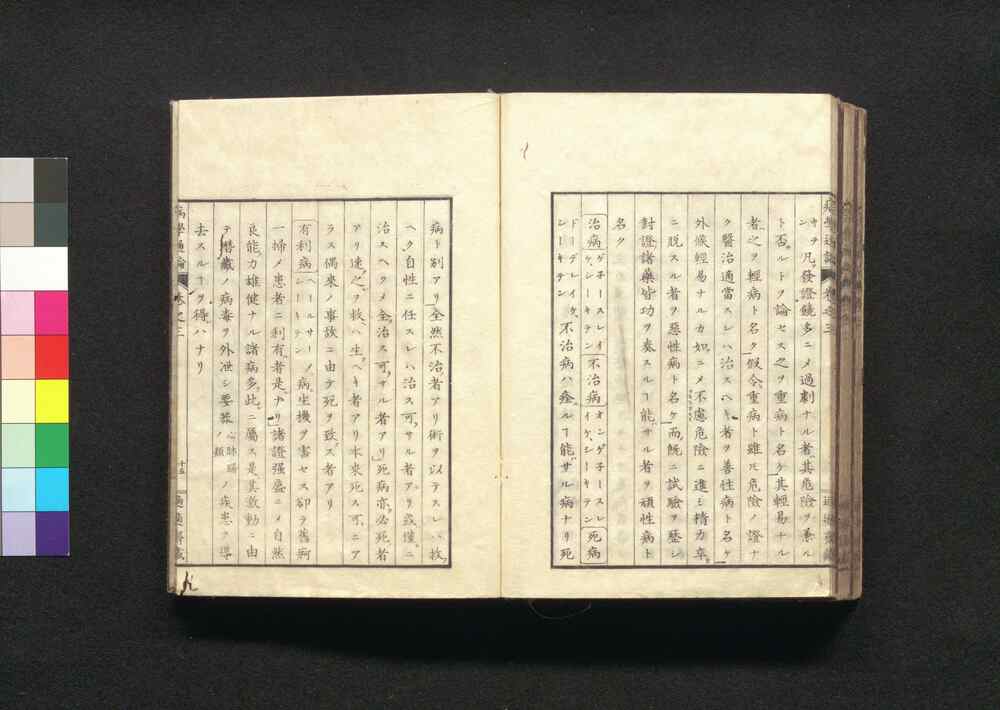 キヲ凡ソ發證饒多ニメ過劇ナル者其危險ヲ兼ル
ト否ルトヲ論セス之ヲ重病ト名ケ其輕易ナル
者之ヲ輕病ト名ク假令重病ト雖モ危險ノ證ナ
ク醫治適當スレハ治スヘキ者ヲ善性病ト名ケ
外候輕易ナルカ如ニメ不慮危險ニ進ミ精力卒
ニ脱スル者ヲ惡性病ト名ケ而既ニ試驗ヲ歴シ
對證諸藥皆功ヲ奏スルヿ能サル者ヲ頑性病ト
名ク
治病 ゲ子ースレイケ、シーキテン 不治病 オンゲ子ースレイケ、シーキテン 死病
ドーデレイケ、シーキテン 不治病ハ痊ルヿ能サル病ナリ死
病ト別アリ全然不治者アリ術ヲ以テスレハ救
ヘク自性ニ任スレハ治ス可サル者アリ或僅ニ
治スヘクメ全治ス可サル者アリ死病亦必死者
アリ速之ヲ救ハ生ヘキ者アリ本來死ス可ニア
ラス偶來ノ事故ニ由テ死ヲ致ス者アリ
有利病 ヘールサーメシーキテン ノ病生機ヲ害セス却テ舊痾
一掃メ患者ニ利有者是ナリ諸證强盛ニメ自然
良能力雄健ナル諸病多此ニ屬ス是其激動ニ由
テ潜藏ノ病毒ヲ外泄シ要器 心肺腦ノ類 ノ疾患ヲ導
去スルヿヲ得ハナリ
病學通論 卷之三
十五
適適齋藏